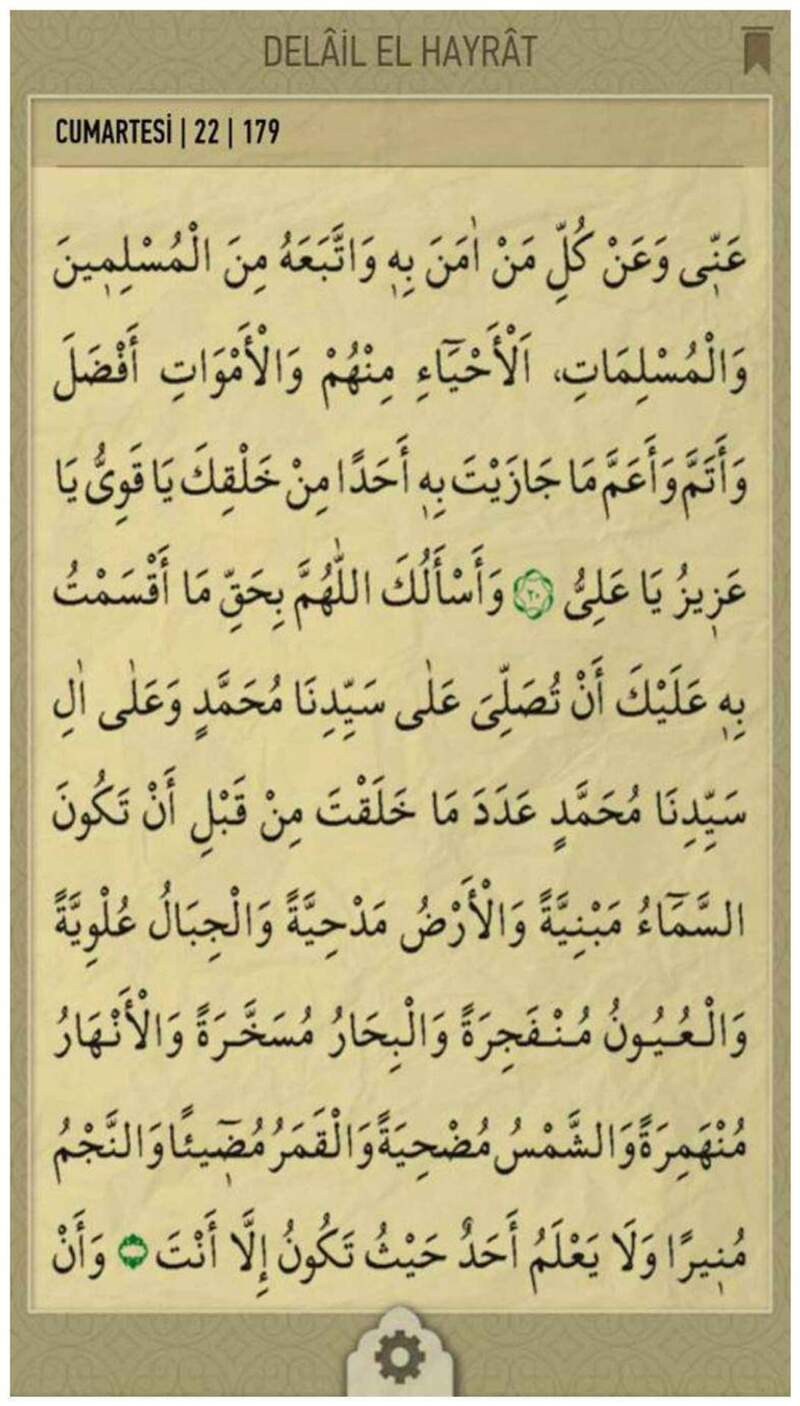 DELÂİL EL HAYRÂT
CUMARTESİ | 22 | 179
عَنّٖى وَعَنْ كُلِّ مَنْ اٰمَنَ بِهٖ وَاتَّبَعَهُ مِنَ الْمُسْلِمٖينَ
وَالْمُسْلِمَاتِ، اَلْأَحْيَٓاءِ مِنْهُمْ وَالْأَمْوَاتِ أَفْضَلَ
وَأَتَمَّ وَأَعَمَّ مَا جَازَيْتَ بِهٖ أَحَدًا مِنْ خَلْقِكَ يَا قَوِىُّ يَا
عَزٖيزُ يَا عَلِىُّ ٢٠ وَأَسْأَلُكَ اللّٰهُمَّ بِحَقِّ مَا أَقْسَمْتُ
بِهٖ عَلَيْكَ أَنْ تُصَلِّىَ عَلٰى سَيِّدِنَا مُحَمَّدٍ وَعَلٰى اٰلِ
سَيِّدِنَا مُحَمَّدٍ عَدَدَ مَا خَلَقْتَ مِنْ قَبْلِ أَنْ تَكُونَ
السَّمَٓاءُ مَبْنِيَّةً وَالْأَرْضُ مَدْحِيَّةً وَالْجِبَالُ عُلْوِيَّةً
وَالْعُيُونُ مُنْفَجِرَةً وَالْبِحَارُ مُسَخَّرَةً وَالْأَنْهَارُ
مُنْهَمِرَةً وَالشَّمْسُ مُضْحِيَةً وَالْقَمَرُ مُضٖٓيئًا وَالنَّجْمُ
مُنٖيرًا وَلَا يَعْلَمُ أَحَدٌ حَيْثُ تَكُونُ إِلَّا أَنْتَ وَأَنْ